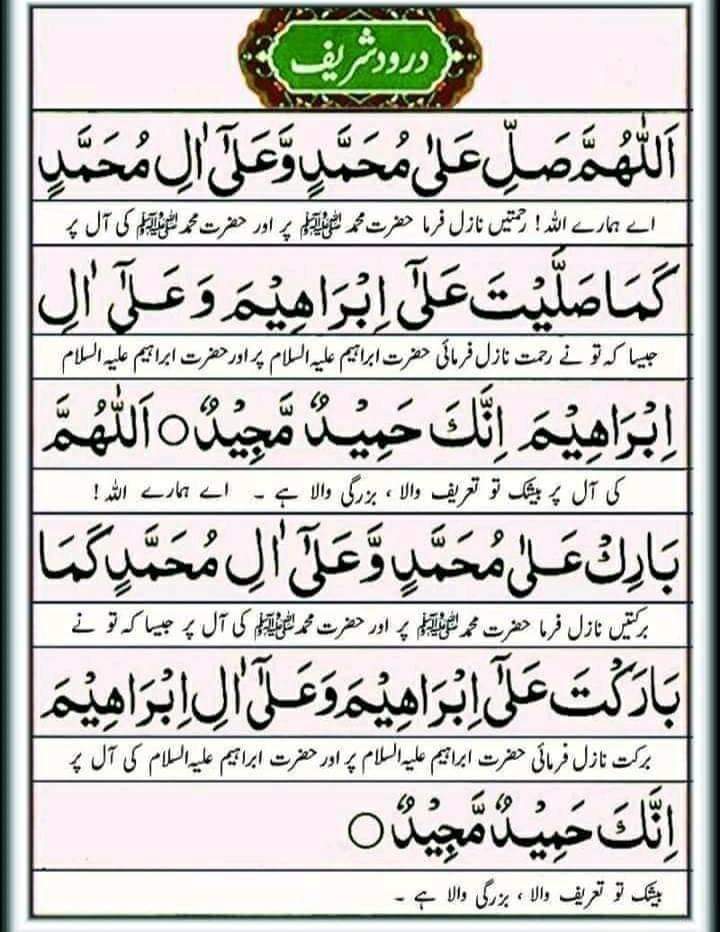 درود شریف
اَللّٰهُمَّ صَلِّ عَلٰی مُحَمَّدٍ وَّعَلٰٓی اٰلِ مُحَمَّدٍ
اے ہمارے اللہ! رحمتیں نازل فرما حضرت محمد ﷺ پر اور حضرت محمد ﷺ کی آل پر
كَمَا صَلَّيْتَ عَلٰٓی اِبْرَاهِيْمَ وَعَلٰٓی اٰلِ
جیسا کہ تو نے رحمت نازل فرمائی حضرت ابراہیم علیہ السلام پر اور حضرت ابراہیم علیہ السلام
اِبْرَاهِيْمَ اِنَّكَ حَمِيْدٌ مَّجِيْدٌ ○ اَللّٰهُمَّ
کی آل پر بیشک تو تعریف والا ، بزرگی والا ہے ۔ اے ہمارے اللہ !
بَارِكْ عَلٰی مُحَمَّدٍ وَّعَلٰٓی اٰلِ مُحَمَّدٍ كَمَا
برکتیں نازل فرما حضرت محمد ﷺ پر اور حضرت محمد ﷺ کی آل پر جیسا کہ تو نے
بَارَكْتَ عَلٰٓی اِبْرَاهِيْمَ وَعَلٰٓی اٰلِ اِبْرَاهِيْمَ
برکت نازل فرمائی حضرت ابراہیم علیہ السلام پر اور حضرت ابراہیم علیہ السلام کی آل پر
اِنَّكَ حَمِيْدٌ مَّجِيْدٌ ○
بیشک تو تعریف والا ، بزرگی والا ہے ۔